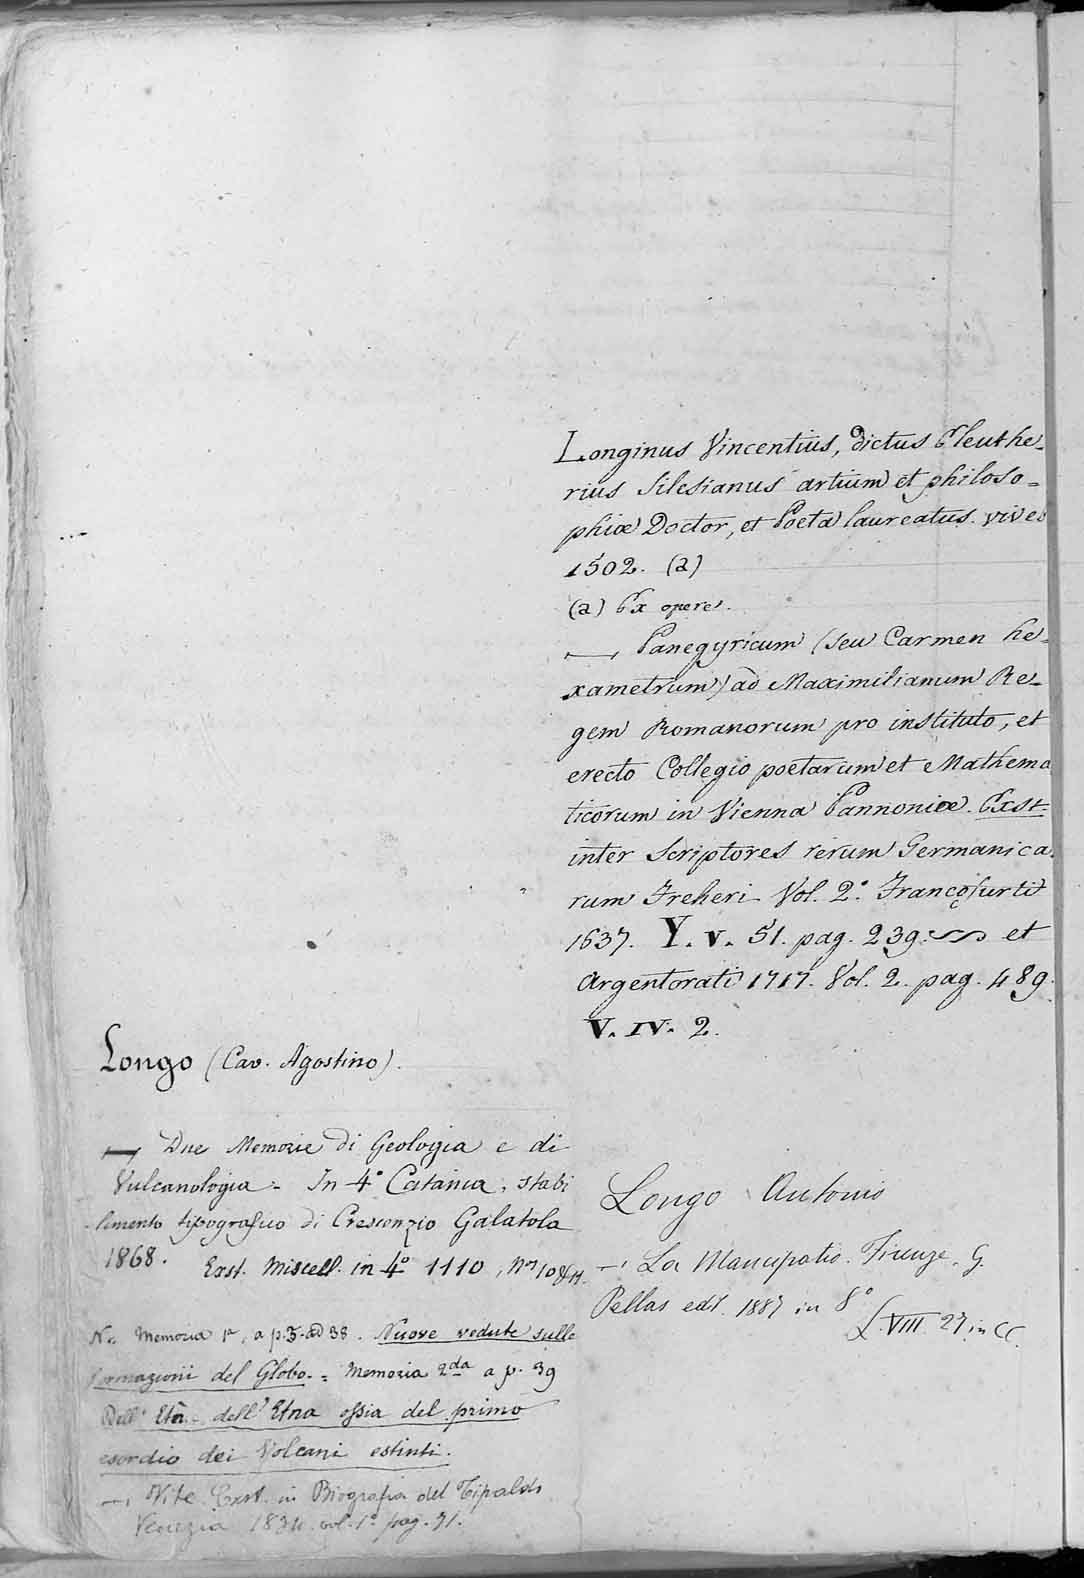 Longo (Cav. Agostino).
— Due Memorie di Geologia e di
Vulcanologia - In 4° Catania, stabi
limento tipografico di Crescenzio Galatola
1868. Exst. Miscell. in 4° 1110, Nri 10 & 11.
Na Memoria 1a, a p. 3 ad 38. Nuove vedute sulle
formazioni del Globo. = Memoria 2da a p. 39
Dell' Età dell' Etna ossia del primo
esordio dei Volcani estinti.
— Vite. Exst. in Biografia del Tipaldo
Venezia 1834. vol. 1° pag. 31.
Longinus Vincentius, dictus Eleuthe-
rius Silesianus artium et philoso=
phiæ Doctor, et Poeta laureatus. vives
1502. (a)
(a) Ex opere.
— Panegyricum (seu Carmen he-
xametrum) ad Maximilianum Re-
gem Romanorum pro instituto, et
erecto Collegio poetarum et Mathema
ticorum in Vienna Pannoniæ. Exst.
inter Scriptores rerum Germanica
rum Freheri Vol. 2° Francofurti
1637. Y. V. 51. pag. 239. et
Argentorati 1717. Vol. 2. pag. 489.
V. IV. 2.
Longo Antonio
— La Mancipatio. Firenze, G.
Pellas edt. 1887 in 8°
L. VIII. 27 in CC.